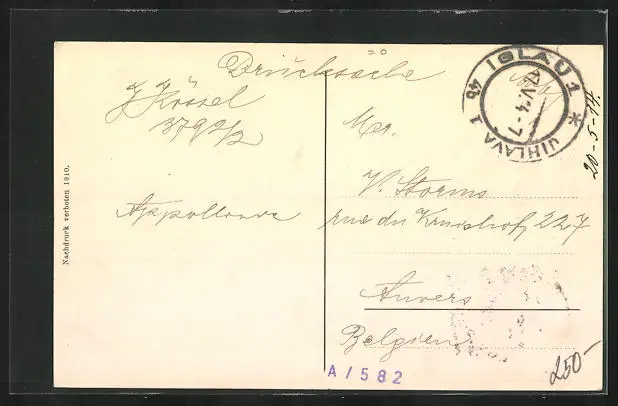 Drucksache
J Kössel
3792/2
Nachdruck verboten 1910.
IGLAU 1
JIHLAVA 1
4b
20-5-14.
Mer.
V. Storms
rue du Kruishof, 227
Anvers
Belgien
A/582
250-